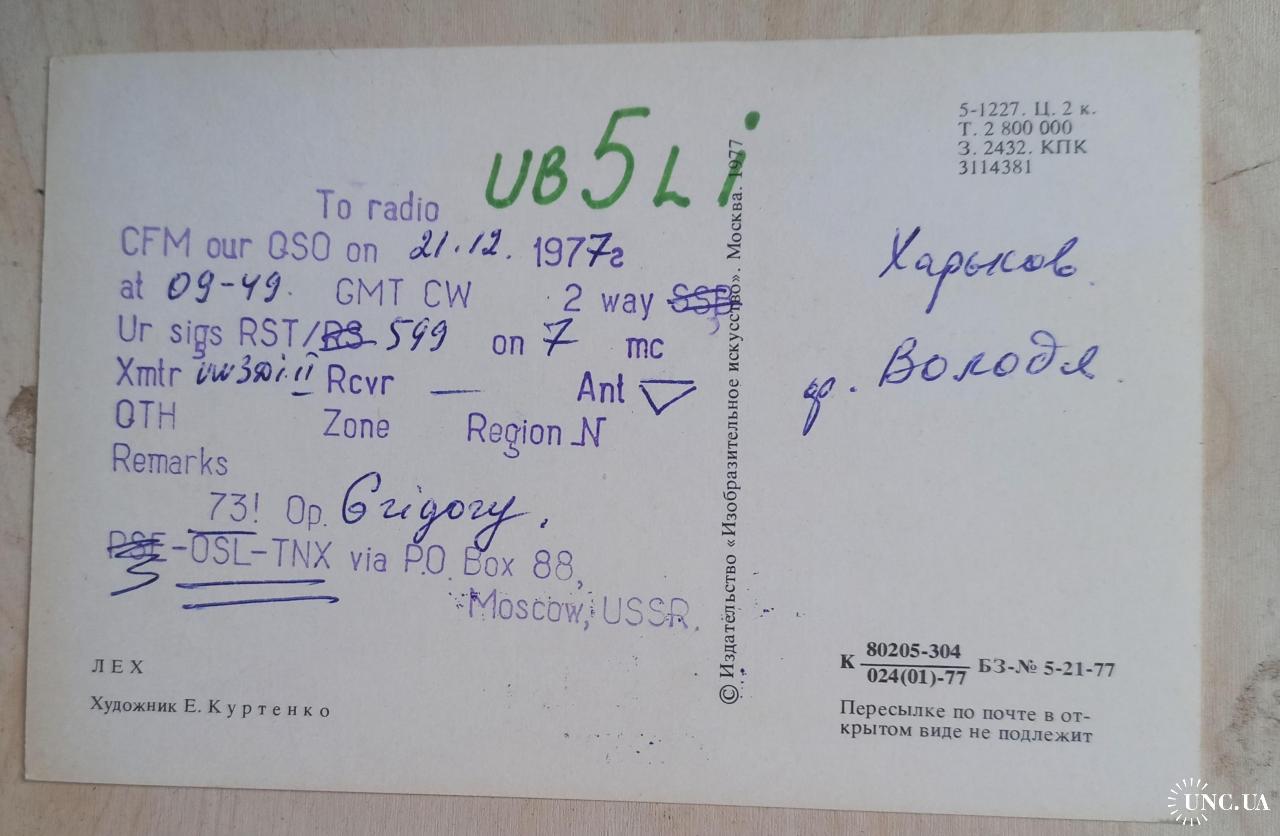 UB5Li
To radio
CFM our QSO on 21.12. 1977г
at 09-49. GMT CW 2 way SSB
Ur sigs RST/RS 599 on 7 mc
Xmtr Rcvr — Ant ▽
QTH Zone Region N
Remarks
73! Op. Grigory.
PSE-QSL-TNX via P.O. Box 88,
Moscow, USSR.
ЛЕХ
Художник Е. Куртенко
© Издательство «Изобразительное искусство». Москва. 1977
5-1227. Ц. 2 к.
Т. 2 800 000
З. 2432. КПК
3114381
Харьков
др. Володя.
К 80205-304
024(01)-77 БЗ-№ 5-21-77
Пересылке по почте в от-
крытом виде не подлежит
UNC.UA